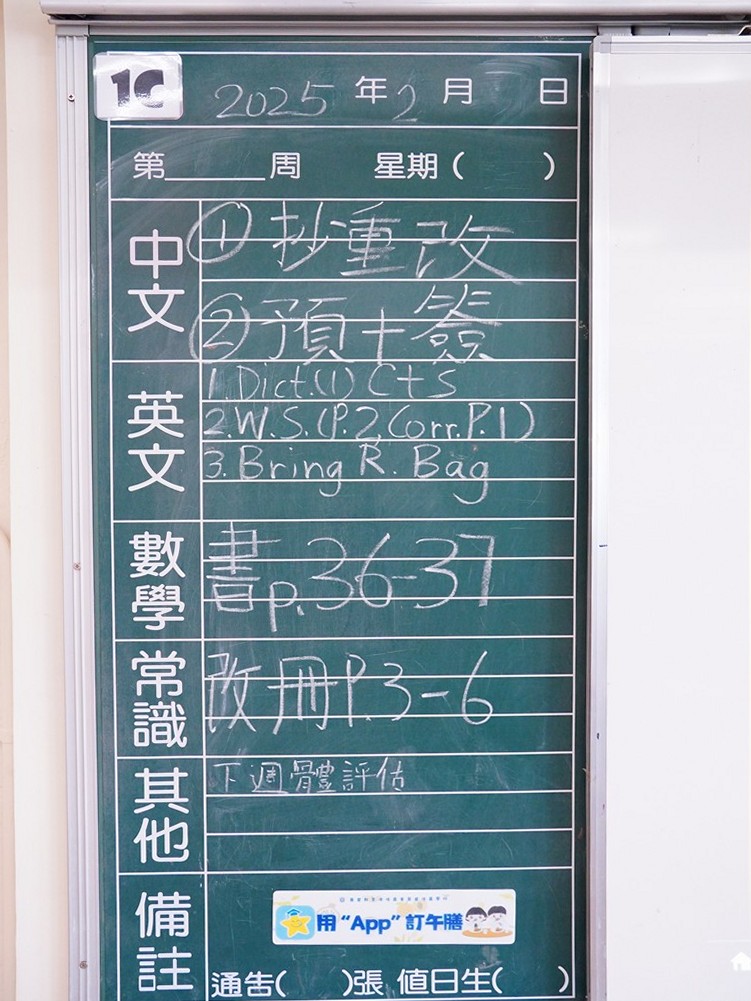 1C
2025 年 2 月 日
第 周 星期( )
中文
① 抄重改
② 預+簽
英文
1. Dict.(1) C+S
2. W.S.(P.2, Corr.P.1)
3. Bring R. Bag
數學
書p.36-37
常識
改冊P.3-6
其他
下週體評估
備註
用 “App” 訂午膳
通告( )張 值日生( )